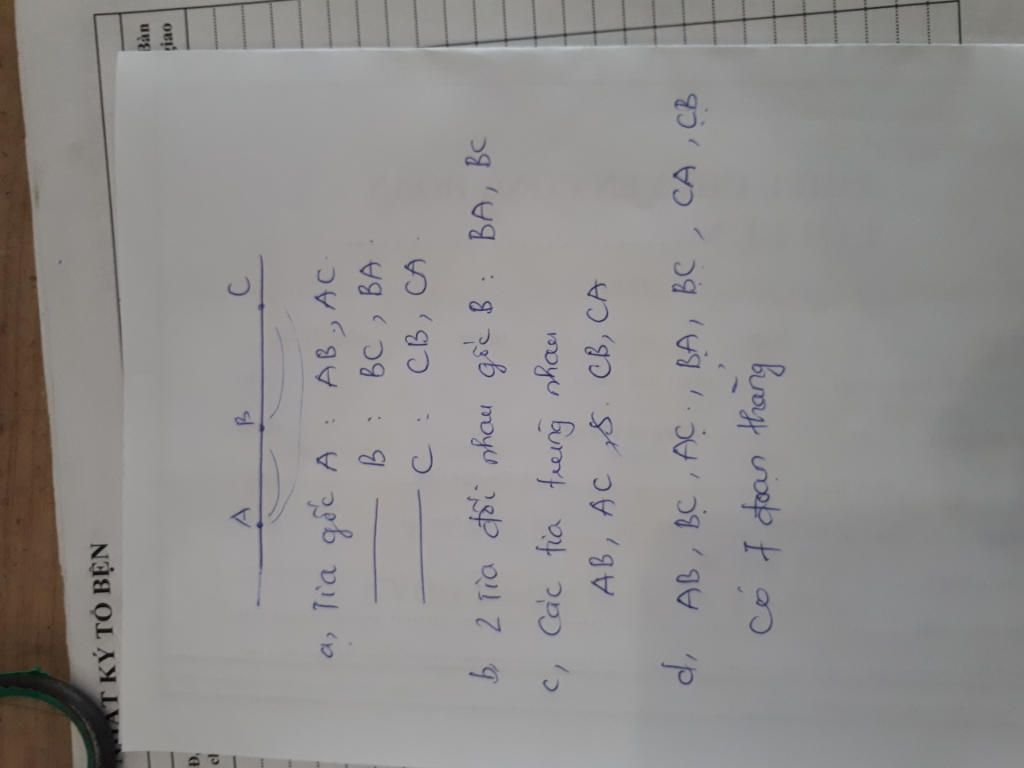 NHẬT KÝ TỔ BỆN
Bàn
giao
A B C
a, Tia gốc A : AB, AC.
B : BC, BA.
C : CB, CA.
b, 2 Tia đối nhau gốc B : BA, BC
c, Các tia trùng nhau
AB, AC CB, CA
d, AB, BC, AC, BA, BC, CA, CB
Có 7 đoạn thẳng